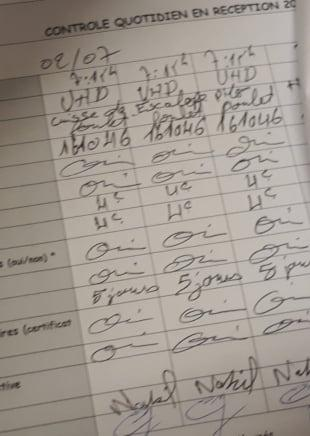 CONTROLE QUOTIDIEN EN RECEPTION 20
02/07
7:15h 7:15h 7:15h
VHD VHD VHD
cuisse de Escalope
poulet poulet poulet
161046 161046 161046
Oui oui Oui
Oui Oui oui
4°C 4°C 4°C
4°C 4°C 4°C
Oui Oui Oui
s (oui/non) * Oui Oui Oui
5 jours 5 jours 5 jou
ires (certificat Oui Oui Oui
Oui Oui Oui
tive
Nabil Nabil Nab